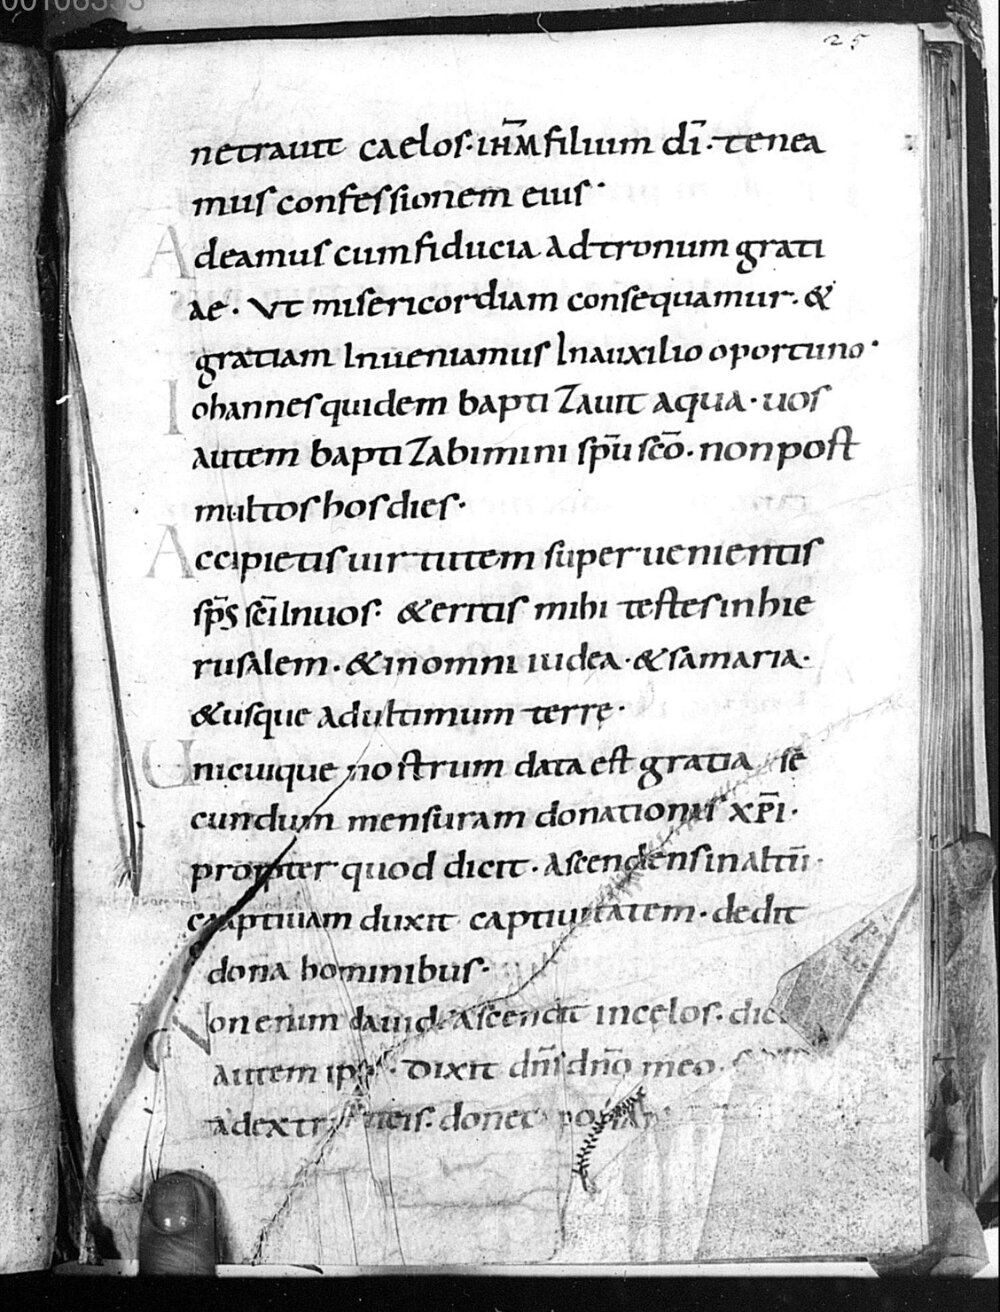 25
netrauit caelos· ih̄m filium dī· tenea
mus confessionem eius·
Adeamus cum fiducia ad tronum grati
ae· Ut misericordiam consequamur· &
gratiam Inueniamus In auxilio oportuno·
Iohannes quidem baptiZauit aqua· uos
autem baptiZabimini sp̄u sc̄o· non post
multos hos dies·
Accipietis uirtutem superuenientis
sp̄s sc̄i In uos· & eritis mihi testes in hie
rusalem· & in omni iudea· & samaria·
& usque ad ultimum terrę·
Unicuique nostrum data est gratia se
cundum mensuram donationis xp̄i·
propter quod dicit· ascendens in altū·
captiuam duxit captiuitatem· dedit
dona hominibus·
Non enim dauid ascendit in cęlos·
autem· Dixit dn̄s dn̄o meo·
donec